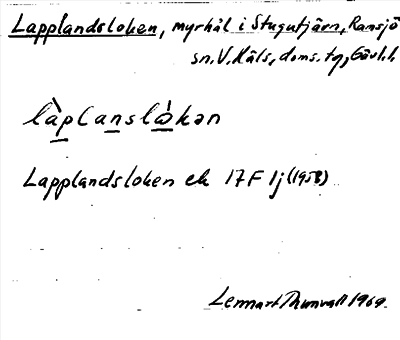 Lapplandsloken, myrhål i Stugutjärn, Ransjö
sn. V. Häls. doms. tg, Gävl. l.
làplanslòkən
Lapplandsloken ek 17F 1j (1958)
Lennart Thunvall 1969.